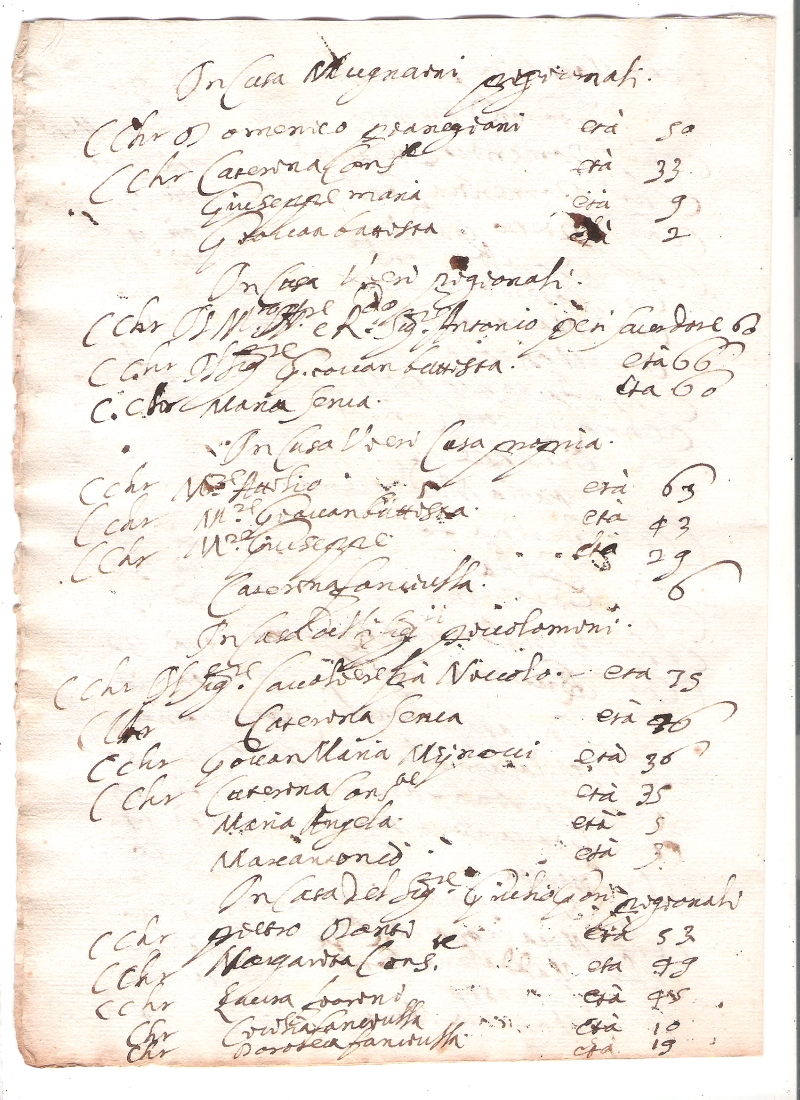 In Casa Mugnaini pigionali.
C Chr Domenico pianegiani età 50
C Chr Caterina Cons.te età 33
Giuseppe maria età 9
Giovan battista età 2
In Casa Pieri pigionali.
C Chr Il M.to e R.do Sig.re Antonio pieri Sacerdote 60
C Chr Il Sig.re Giovan battista. età 66
C. Chr Maria Serva. età 60
In Casa Pieri Casa propria.
C Chr M.re Attilio età 63
C Chr M.re Giovan battista. età 43
C Chr M.re Giuseppe età 29
Caterina fanciulla. 6
In Casa delli Sig.ri piccolomini.
C Chr Il Sig.re Cavaliere Niccolo. età 35
C Chr Caterina Serva età
C Chr Giovan Maria età 36
C Chr Caterina Cons.te età 35
Maria Angela. età 5
Marcantonio età 3
In Casa del Sig.re pigionali
C Chr pietro Danti età 53
C Chr Margarita Cons.te eta 49
C Chr Laura età 45
Chr Cecilia fanciulla età 10
Chr Dorotea fanciulla età 19